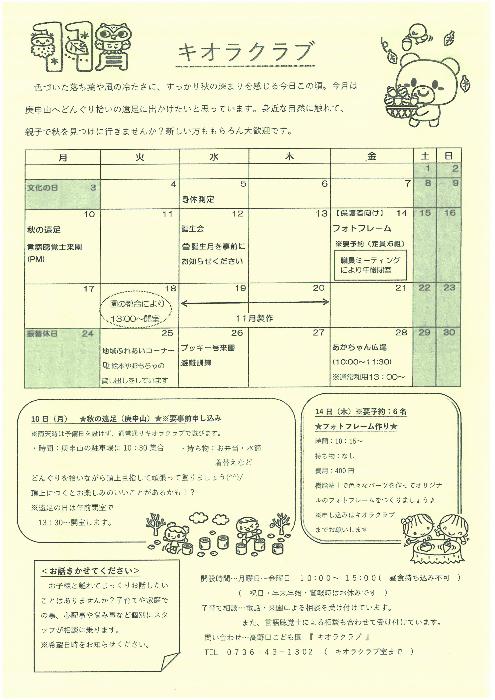 11月
キオラクラブ
色づいた落ち葉や風の冷たさに、すっかり秋の深まりを感じる今日この頃。今月は
庚申山へどんぐり拾いの遠足に出かけたいと思っています。身近な自然に触れて、
親子で秋を見つけに行きませんか？新しい方ももちろん大歓迎です。
月 火 水 木 金 土 日
1 2
文化の日 3 4 5 6 7 8 9
身体測定
10 11 12 13 【保護者向け】 14 15 16
秋の遠足
言語聴覚士来園
(PM)
誕生会
誕生月を事前に
お知らせください
フォトフレーム
※要予約（定員6組）
職員ミーティング
により午後閉室
17 18 19 20 21 22 23
園の都合により
13:00～開室
11月製作
振替休日 24 25 26 27 28 29 30
地域ふれあいコーナー
『絵本やおもちゃの
貸し出しをしています
ブッキー号来園
避難訓練
あかちゃん広場
(10:00～11:30)
※通常利用13:00～
10日（月） ★秋の遠足（庚申山）★※要事前申し込み
※雨天時は予備日を設けず、通常通りキオラクラブで遊びます。
・時間：庚申山の駐車場に10：30集合 ・持ち物：お弁当・水筒
着替えなど
どんぐりを拾いながら頂上目指して頑張って登りましょう(^^)/
頂上につくとお楽しみのいいことがあるかも！？
※遠足の日は午前閉室で
13：30～開室します。
14日（木）※要予約：6名
★フォトフレーム作り★
時間：10：15～
持ち物：なし
費用：400円
ルのフォトフレームをつくりましょう♪
※申し込みはキオラクラブ
までお願いします
＜お話きかせてください＞
お子様と離れてじっくりお話したい
ことはありませんか？子育てや家庭で
の事、心配事や悩み事など個別にスタ
ッフが相談に乗ります。
※希望日時をお知らせください。
開設時間…月曜日～金曜日 10：00～15：00（ 昼食持ち込み不可 ）
（ 祝日・年末年始・警報時はお休みです ）
子育て相談…電話・来園による相談を受け付けています。
また、言語聴覚士による相談も合わせて受け付けています。
問い合わせ…高野口こども園『 キオラクラブ 』
TEL 0736-43-1302（ キオラクラブ室まで ）